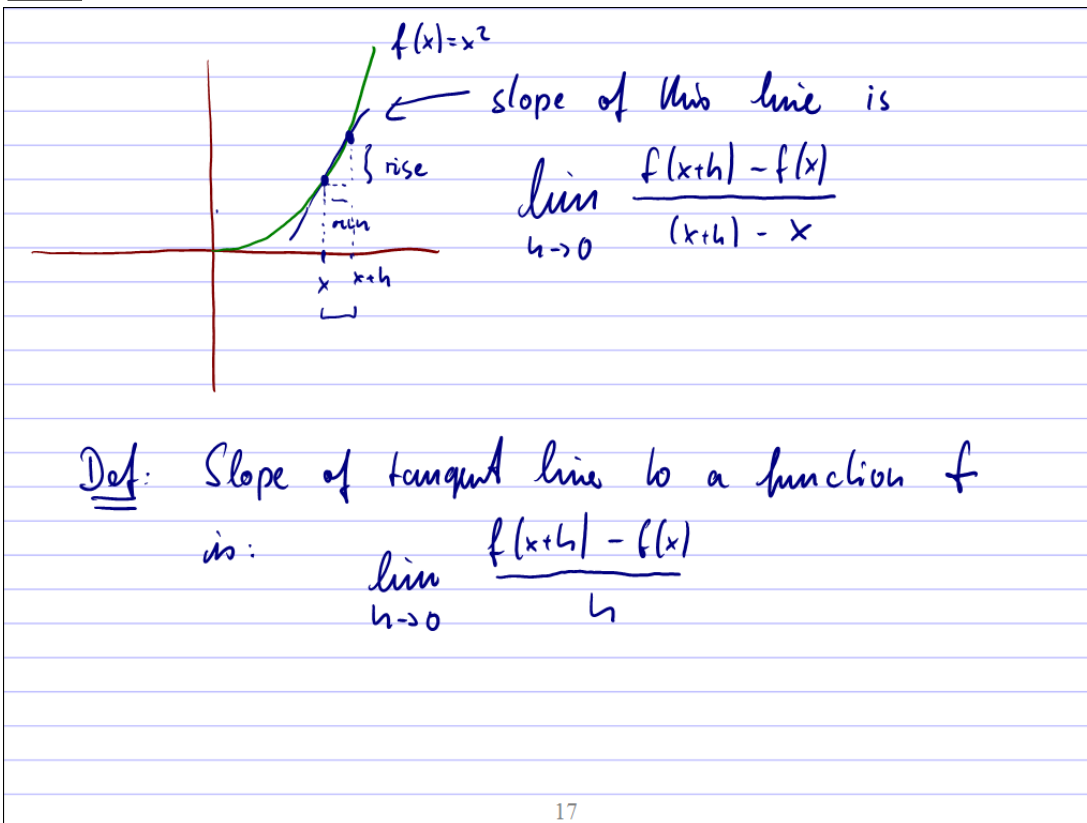 f(x)=x²
slope of this line is
} rise
run
lim f(x+h) - f(x) / (x+h) - x
h→0
x x+h
Def: Slope of tangent line to a function f
is: lim f(x+h) - f(x) / h
h→0
17